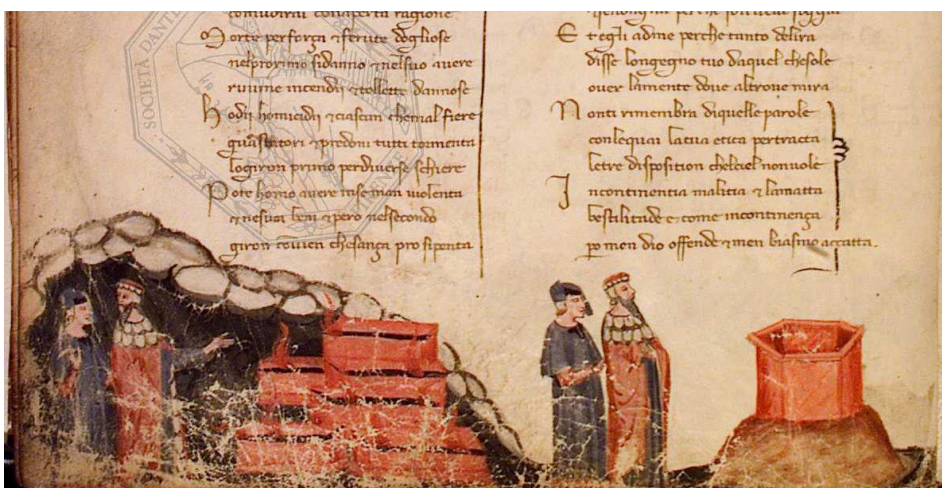 con aperta ragione
Morte perforça & ferute dogliose
nelproximo sidanno & nelsuo auere
ruuine incendii & tollette dannose
Hodii homicidii & ciascun chemal fiere
guastatori & predoni tutti tormenta
logiron primo perdiuerse schiere
Pote homo auere inse man uiolenta
& nesuoi beni & pero nelsecondo
giron couien chesança pro sipenta
Et egli adme perche tanto delira
disse longegno tuo daquel chesole
ouer lamente doue altroue mira
Nonti rimembra diquelle parole
conlequai latua etica pertracta
letre disposition chelciel nonuole
Incontinentia malitia & lamatta
bestilitade e come incontinença
men dio offende & men biasmo accatta.
SOCIETÀ